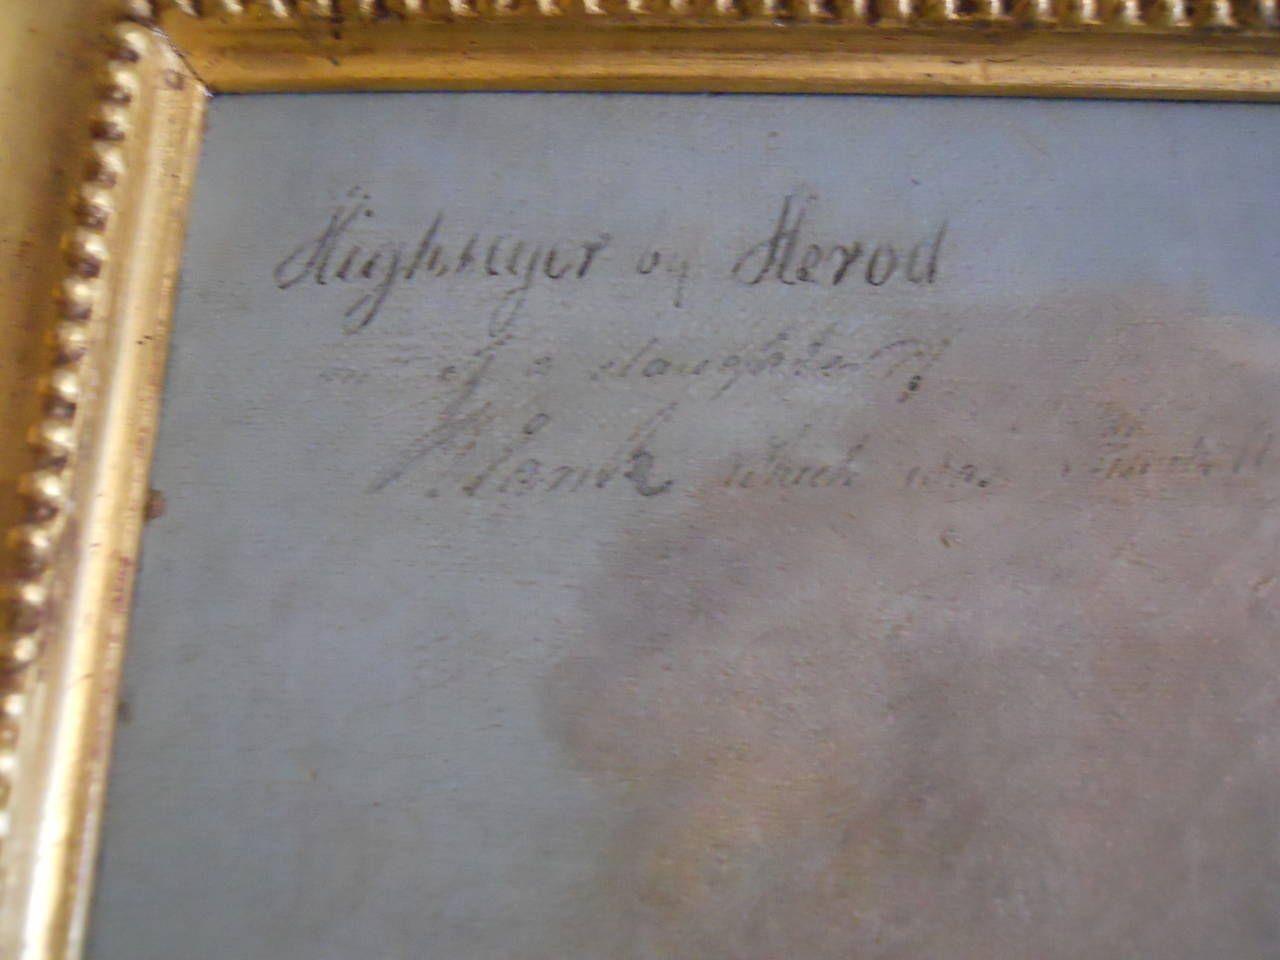 Highflyer by Herod
of a daughter of
Blank which was